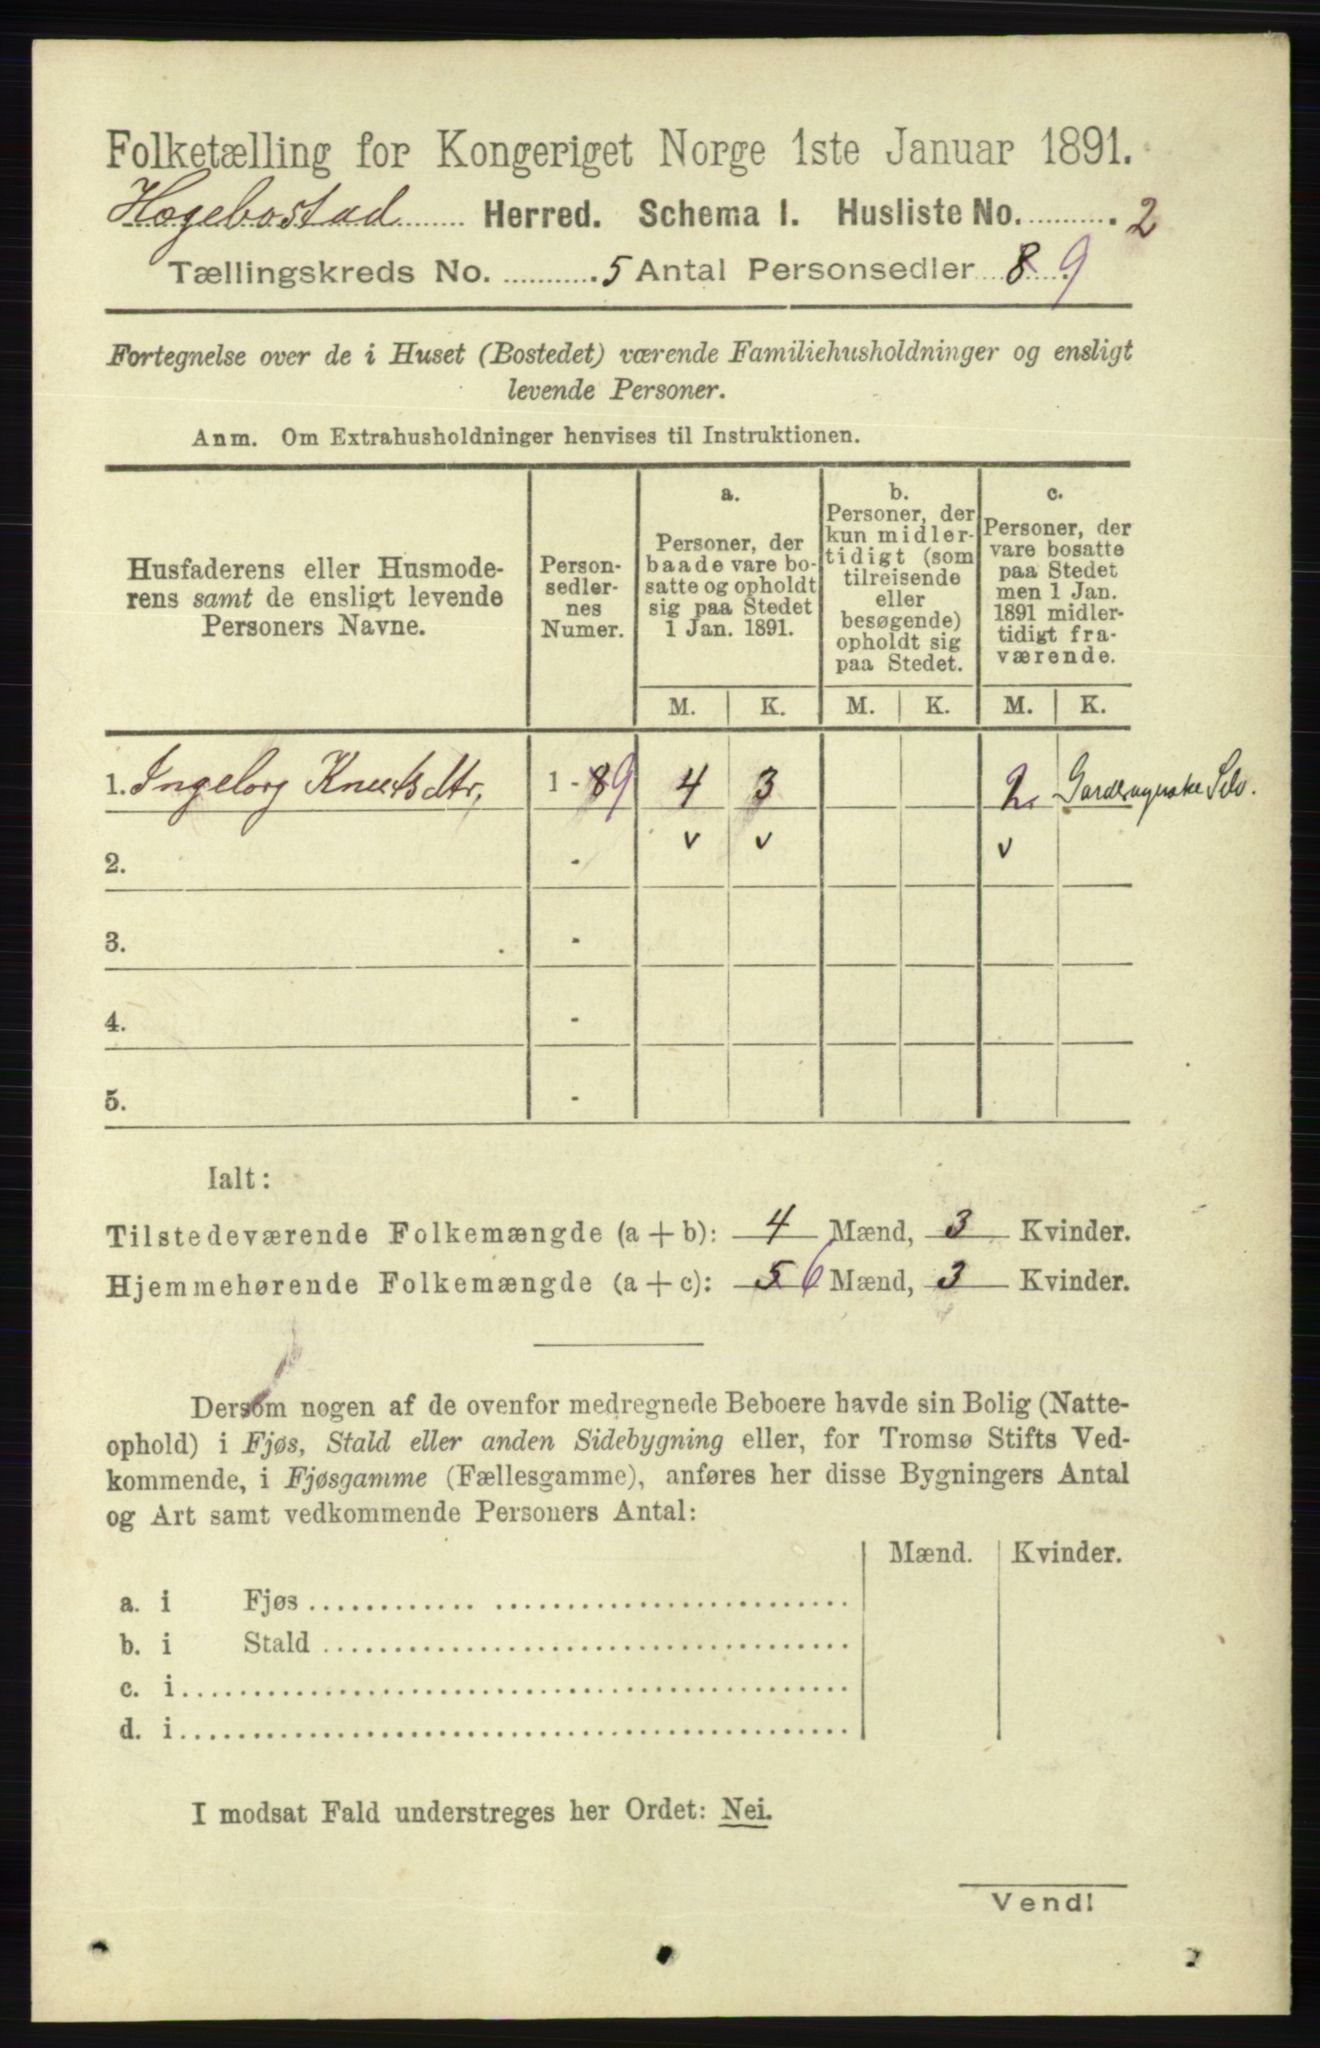 Folketælling for Kongeriget Norge 1ste Januar 1891.
Hægebostad Herred. Schema I. Husliste No. 2
Tællingskreds No. 5 Antal Personsedler 8 9
Fortegnelse over de i Huset (Bostedet) værende Familiehusholdninger og ensligt
levende Personer.
Anm. Om Extrahusholdninger henvises til Instruktionen.
Husfaderens eller Husmode-
rens samt de ensligt levende
Personers Navne.
Person-
sedler-
nes
Numer.
a.
Personer, der
baade vare bo-
satte og opholdt
sig paa Stedet
1 Jan. 1891.
b.
Personer, der
kun midler-
tidigt (som
tilreisende
eller
besøgende)
opholdt sig
paa Stedet.
c.
Personer, der
vare bosatte
paa Stedet
men 1 Jan.
1891 midler-
tidigt fra-
værende.
M. K. M. K. M. K.
1. Ingeborg Knutsdtr, 1 - 8 9 4 3 2
2. - v v v
3. -
4. -
5. -
Ialt:
Tilstedeværende Folkemængde (a + b): 4 Mænd, 3 Kvinder.
Hjemmehørende Folkemængde (a + c): 5 6 Mænd, 3 Kvinder.
Dersom nogen af de ovenfor medregnede Beboere havde sin Bolig (Natte-
ophold) i Fjøs, Stald eller anden Sidebygning eller, for Tromsø Stifts Ved-
kommende, i Fjøsgamme (Fællesgamme), anføres her disse Bygningers Antal
og Art samt vedkommende Personers Antal:
Mænd. Kvinder.
a. i Fjøs
b. i Stald
c. i
d. i
I modsat Fald understreges her Ordet: Nei.
Vend!